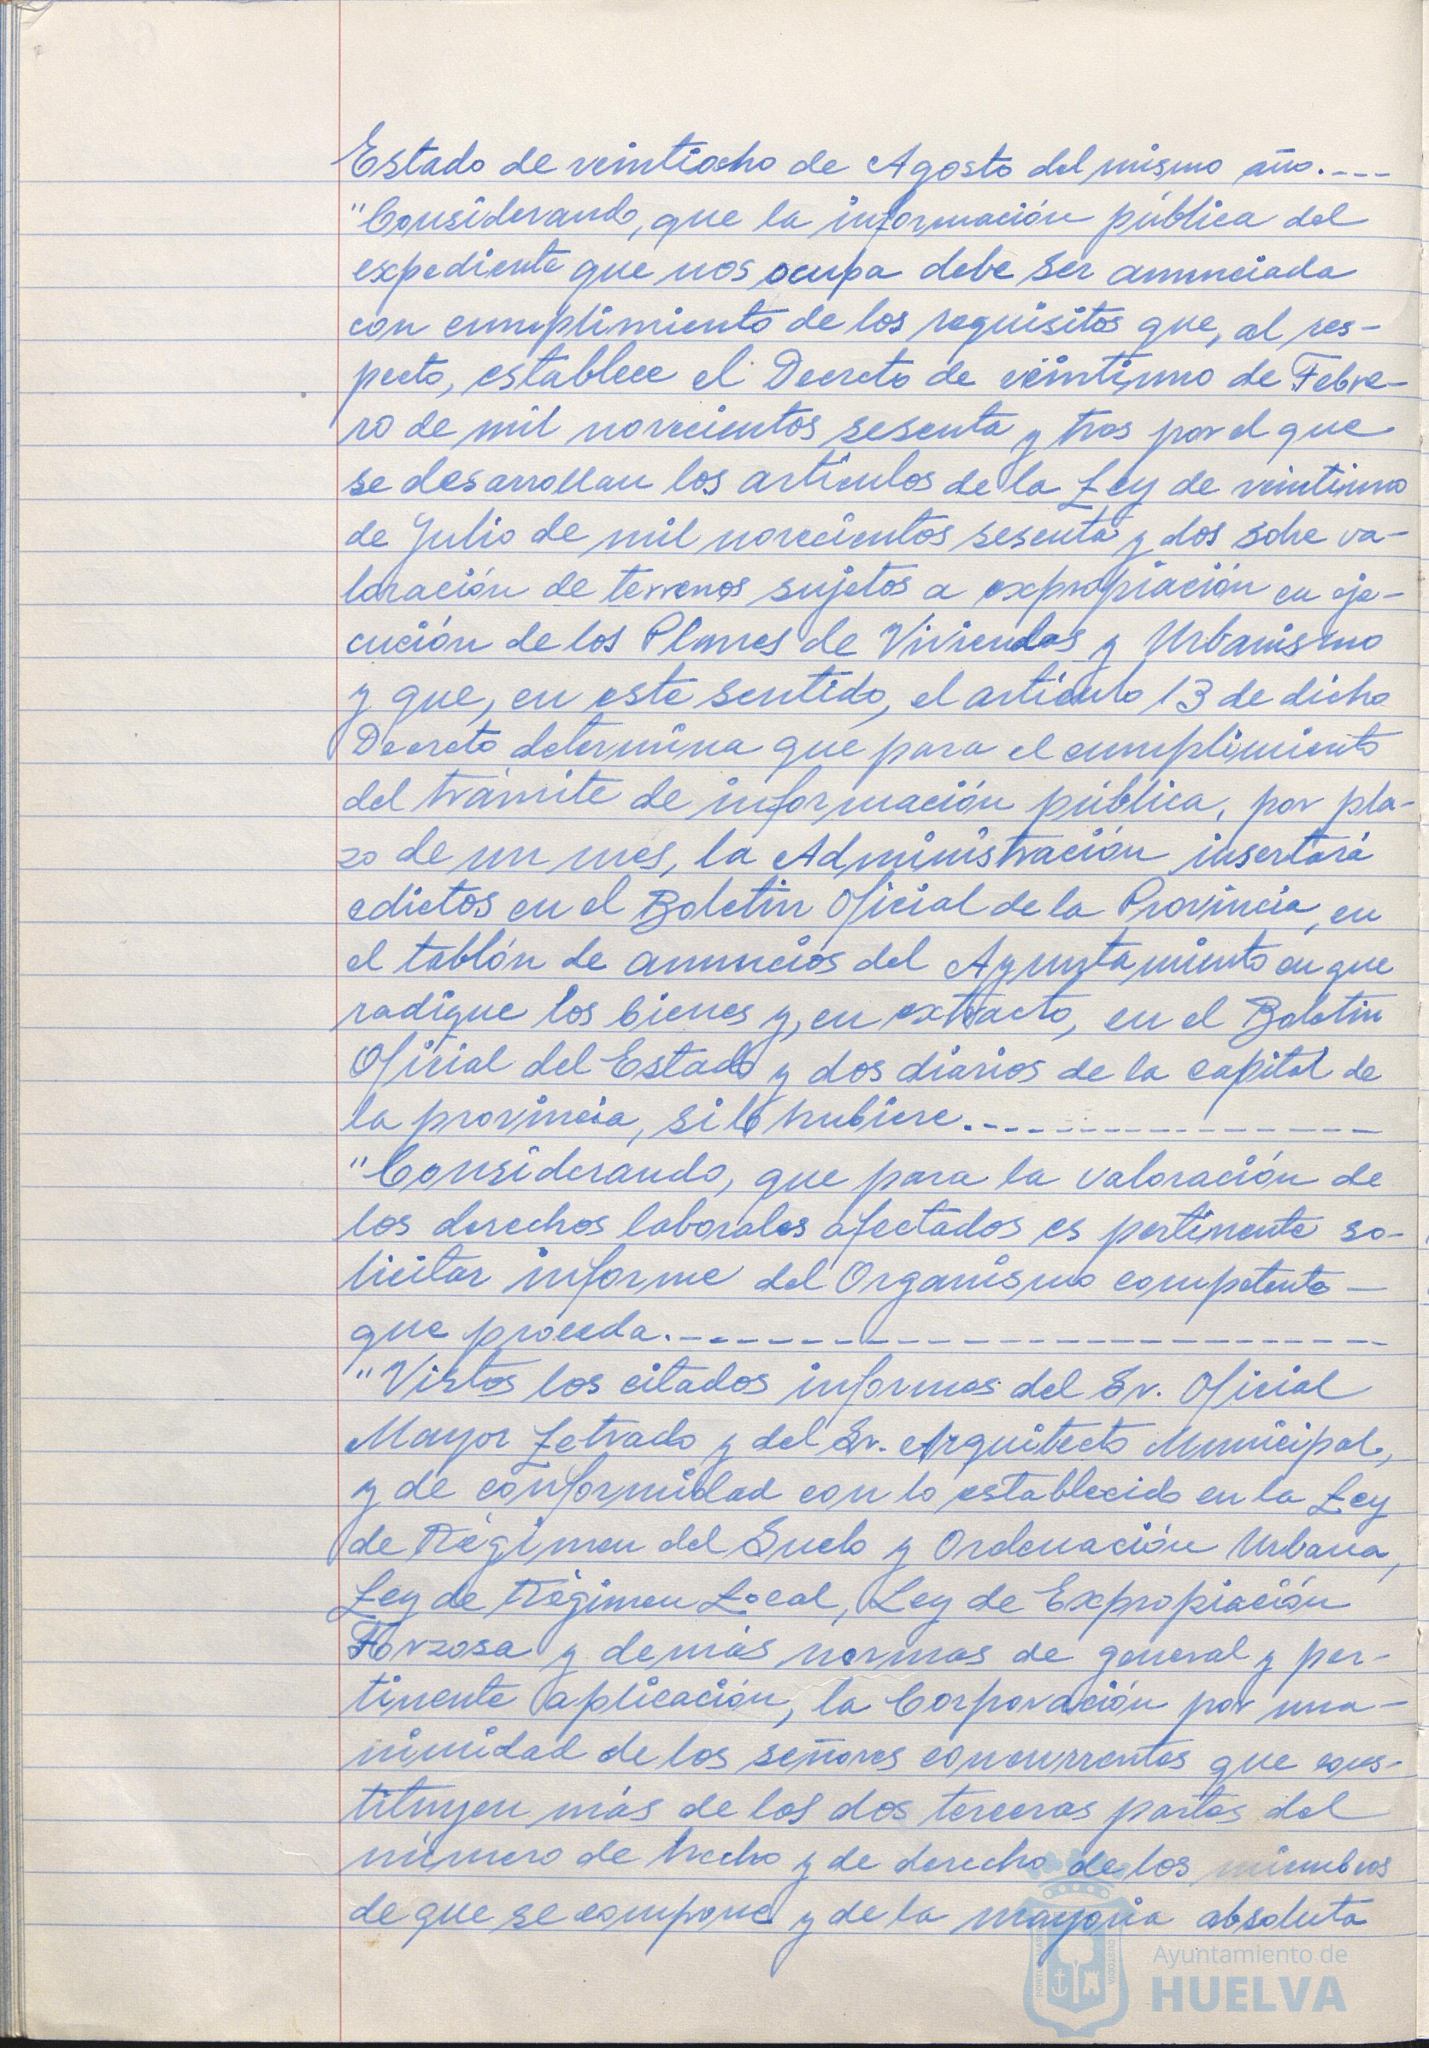 Estado de veintiocho de Agosto del mismo año.----
"Considerando, que la información pública del
expediente que nos ocupa debe ser anunciada
con cumplimiento de los requisitos que, al res-
pecto, establece el Decreto de veintiuno de Febre-
ro de mil novecientos sesenta y tres por el que
se desarrollan los artículos de la Ley de veintiuno
de Julio de mil novecientos sesenta y dos sobre va-
loración de terrenos sujetos a expropiación en eje-
cución de los Planes de Viviendas y Urbanismo
y que, en este sentido, el artículo 13 de dicho
Decreto determina que para el cumplimiento
del trámite de información pública, por pla-
zo de un mes, la Administración insertará
edictos en el Boletin Oficial de la Provincia, en
el tablón de anuncios del Ayuntamiento en que
radique los bienes y, en extracto, en el Boletin
Oficial del Estado y dos diarios de la capital de
la provincia, si lo hubiere.----------------
"Considerando, que para la valoración de
los derechos laborales afectados es pertinente so-
licitar informe del Organismo competente —
que proceda.--------------------
"Vistos los citados informes del Sr. Oficial
Mayor Letrado y del Sr. Arquitecto Municipal,
y de conformidad con lo establecido en la Ley
de Régimen del Suelo y Ordenación Urbana,
Ley de Régimen Local, Ley de Expropiación
Forzosa y demás normas de general y per-
tinente aplicación, la Corporación por una-
nimidad de los señores concurrentes que cons-
tituyen más de las dos terceras partes del
número de hecho y de derecho de los miembros
de que se compone y de la mayoria absoluta
Ayuntamiento de
HUELVA